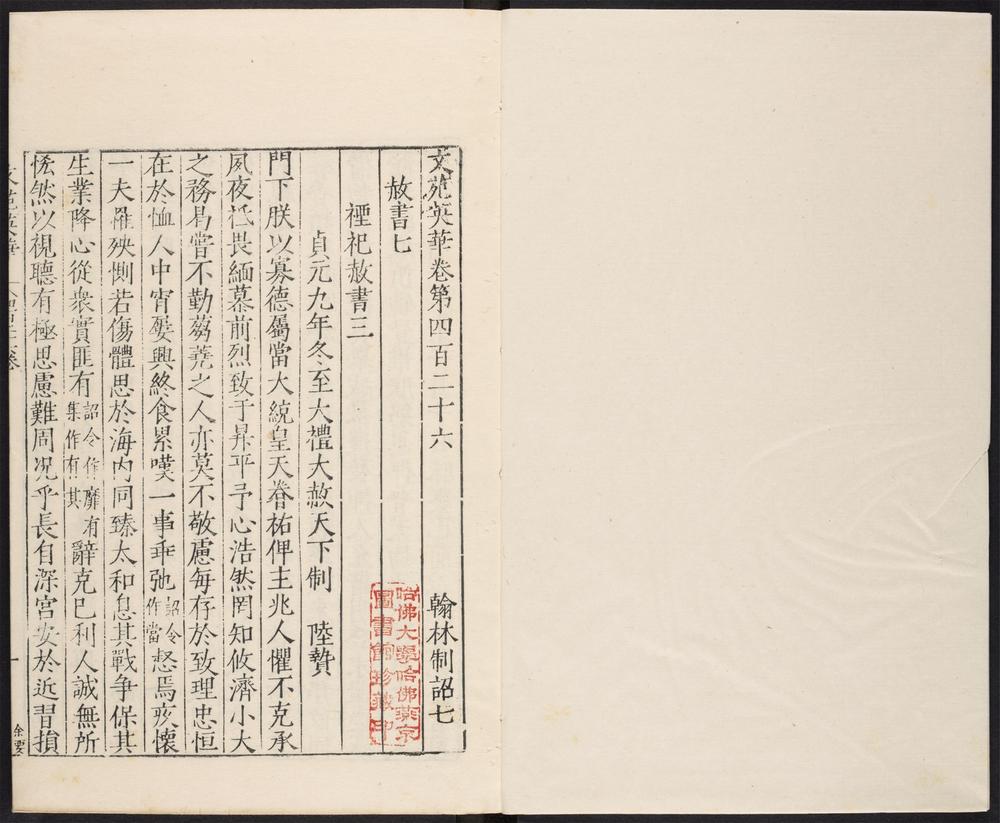 文苑英華卷第四百二十六　翰林制詔七
赦書七
禋祀赦書三
貞元九年冬至大禮大赦天下制　陸贄
門下朕以寡德屬當大統皇天眷祐俾主兆人懼不克承
夙夜祗畏緬慕前烈致于昇平予心浩然罔知攸濟小大
之務曷嘗不勤蒭蕘之人亦莫不敬慮每存於致理忠恒
在於恤人中宵屢興終食累嘆一事乖弛詔令作當惄焉疚懷
一夫罹殃惻若傷體思於海内同臻太和息其戰争保其
生業降心從衆實匪有詔令作靡有集作有其辭克己利人誠無所
恡然以視聽有極思慮難周况乎長自深宫安於近習損
哈佛大學哈佛燕京
圖書館珍藏印
文苑英華
一